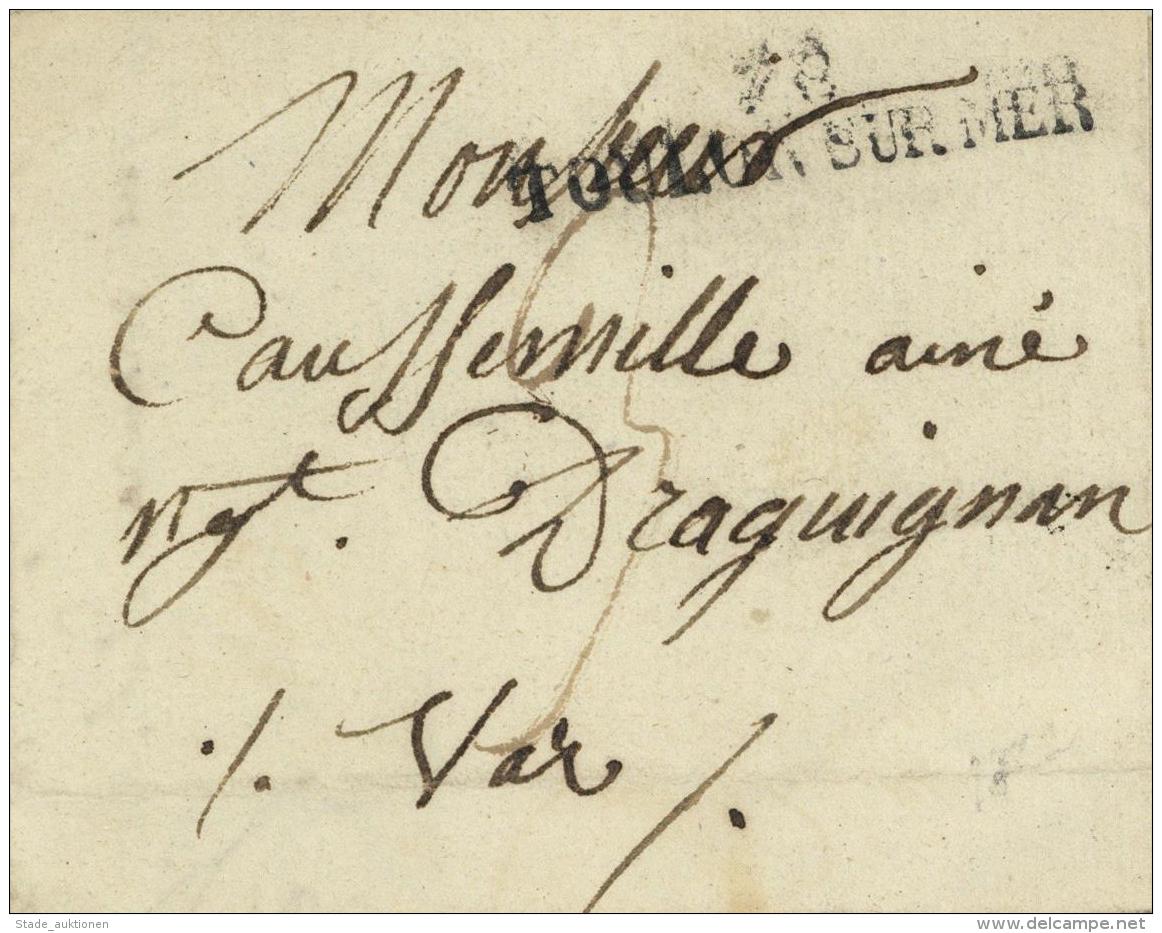 78
TOULON SUR MER
Monsieur
Caussemille ainé
negt. Draguignan
./. Var /.
Stade_auktionen
www.delcampe.net